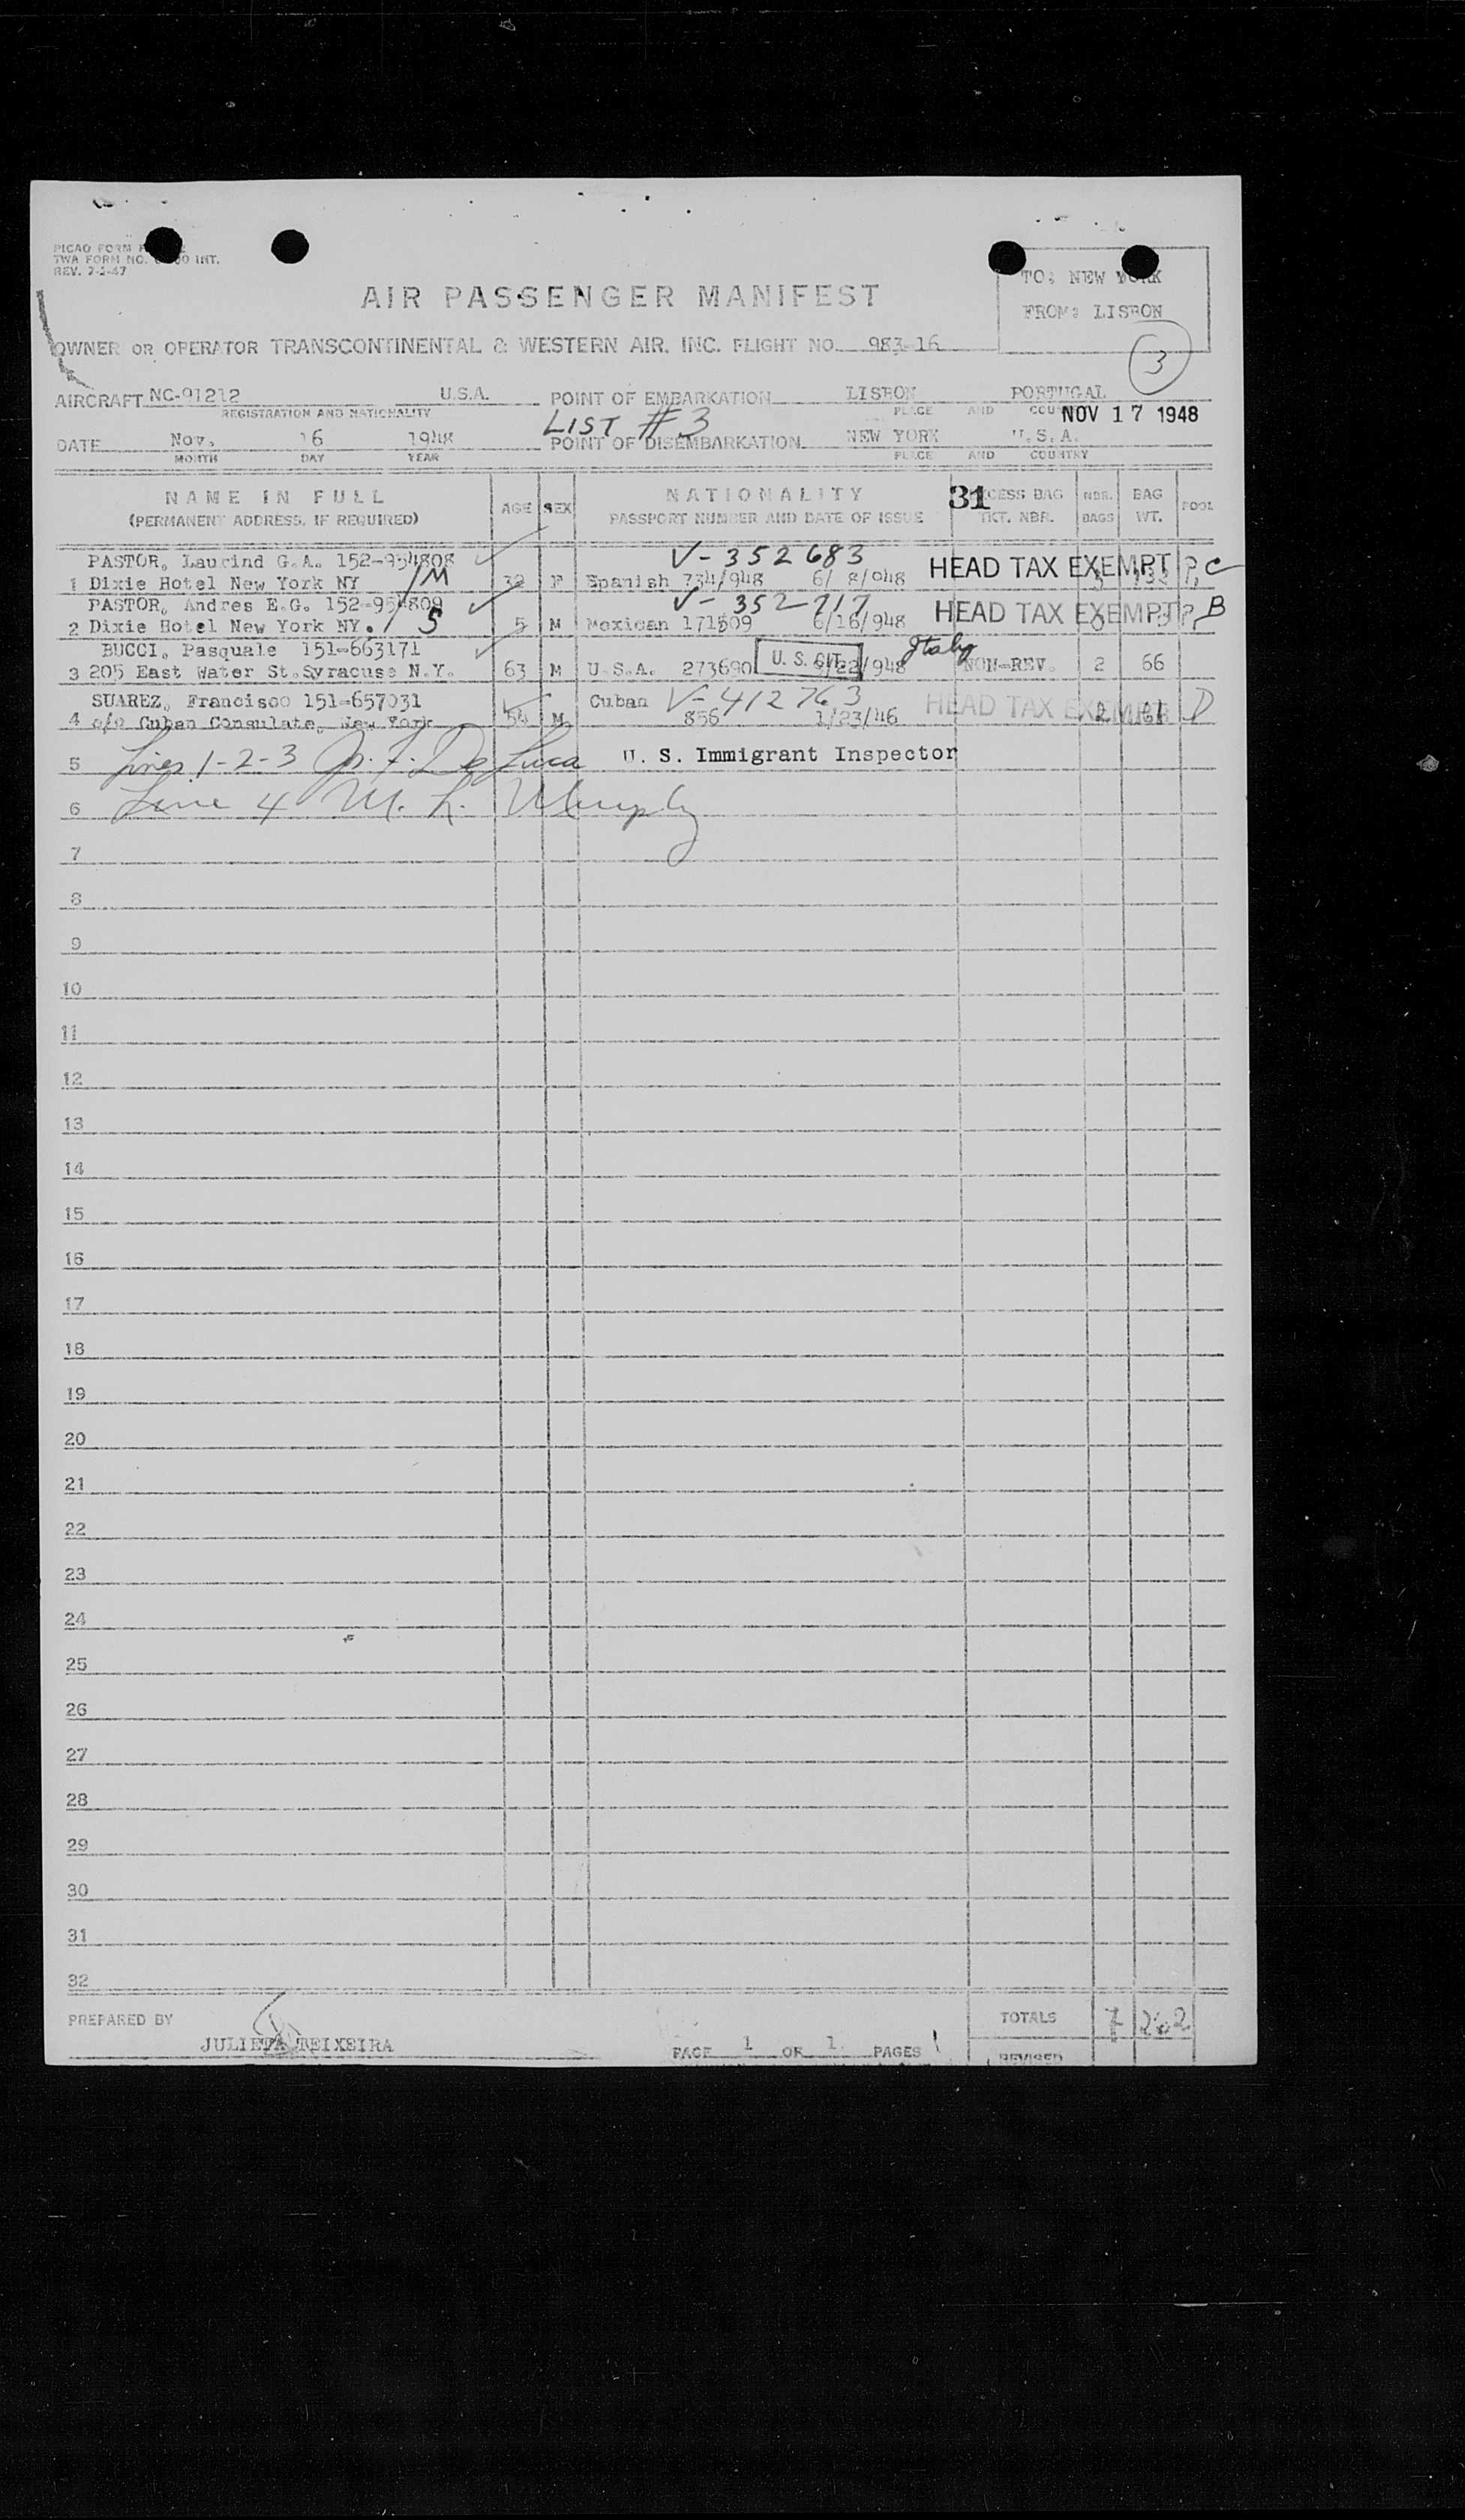 PICAO FORM
TWA FORM NO. INT.
REV. 7-1-47
TO: NEW YORK
FROM: LISBON
3
AIR PASSENGER MANIFEST
OWNER OR OPERATOR TRANSCONTINENTAL & WESTERN AIR, INC. FLIGHT NO. 983-16
AIRCRAFT NC-91212 U.S.A. POINT OF EMBARKATION LISBON PORTUGAL
REGISTRATION AND NATIONALITY PLACE AND NOV 17 1948
LIST #3
DATE Nov. 16 1948 POINT OF DISEMBARKATION NEW YORK U.S.A.
MONTH DAY YEAR PLACE AND COUNTRY
NAME IN FULL AGE SEX NATIONALITY 31 CESS BAG NBR. BAG POOL
(PERMANENT ADDRESS, IF REQUIRED) PASSPORT NUMBER AND DATE OF ISSUE TKT. NBR. BAGS WT.
PASTOR, Laurind G.A. 152-954808 V-352683 HEAD TAX EXEMPT C
1 Dixie Hotel New York NY /M 32 F Spanish 734/948 6/ 8/948
PASTOR, Andres E.G. 152-954809 V-352717 HEAD TAX EXEMPT B
2 Dixie Hotel New York NY. /S 5 M Mexican 171509 6/16/948
BUCCI, Pasquale 151-663171 U. S. CIT. Italy
3 205 East Water St.Syracuse N.Y. 63 M U.S.A. 273690 9/22/948 NON-REV. 2 66
SUAREZ, Francisco 151-657031 Cuban V-412763 HEAD TAX EXEMPT D
4 c/o Cuban Consulate, New York 54 M 856 1/23/46 2 61
5 Lines 1-2-3 De Luca U. S. Immigrant Inspector
6 Line 4 M. L. Murphy
7
8
9
10
11
12
13
14
15
16
17
18
19
20
21
22
23
24
25
26
27
28
29
30
31
32
PREPARED BY TOTALS 7 262
JULIETA TEIXEIRA PAGE 1 OF 1 PAGES
REVISED